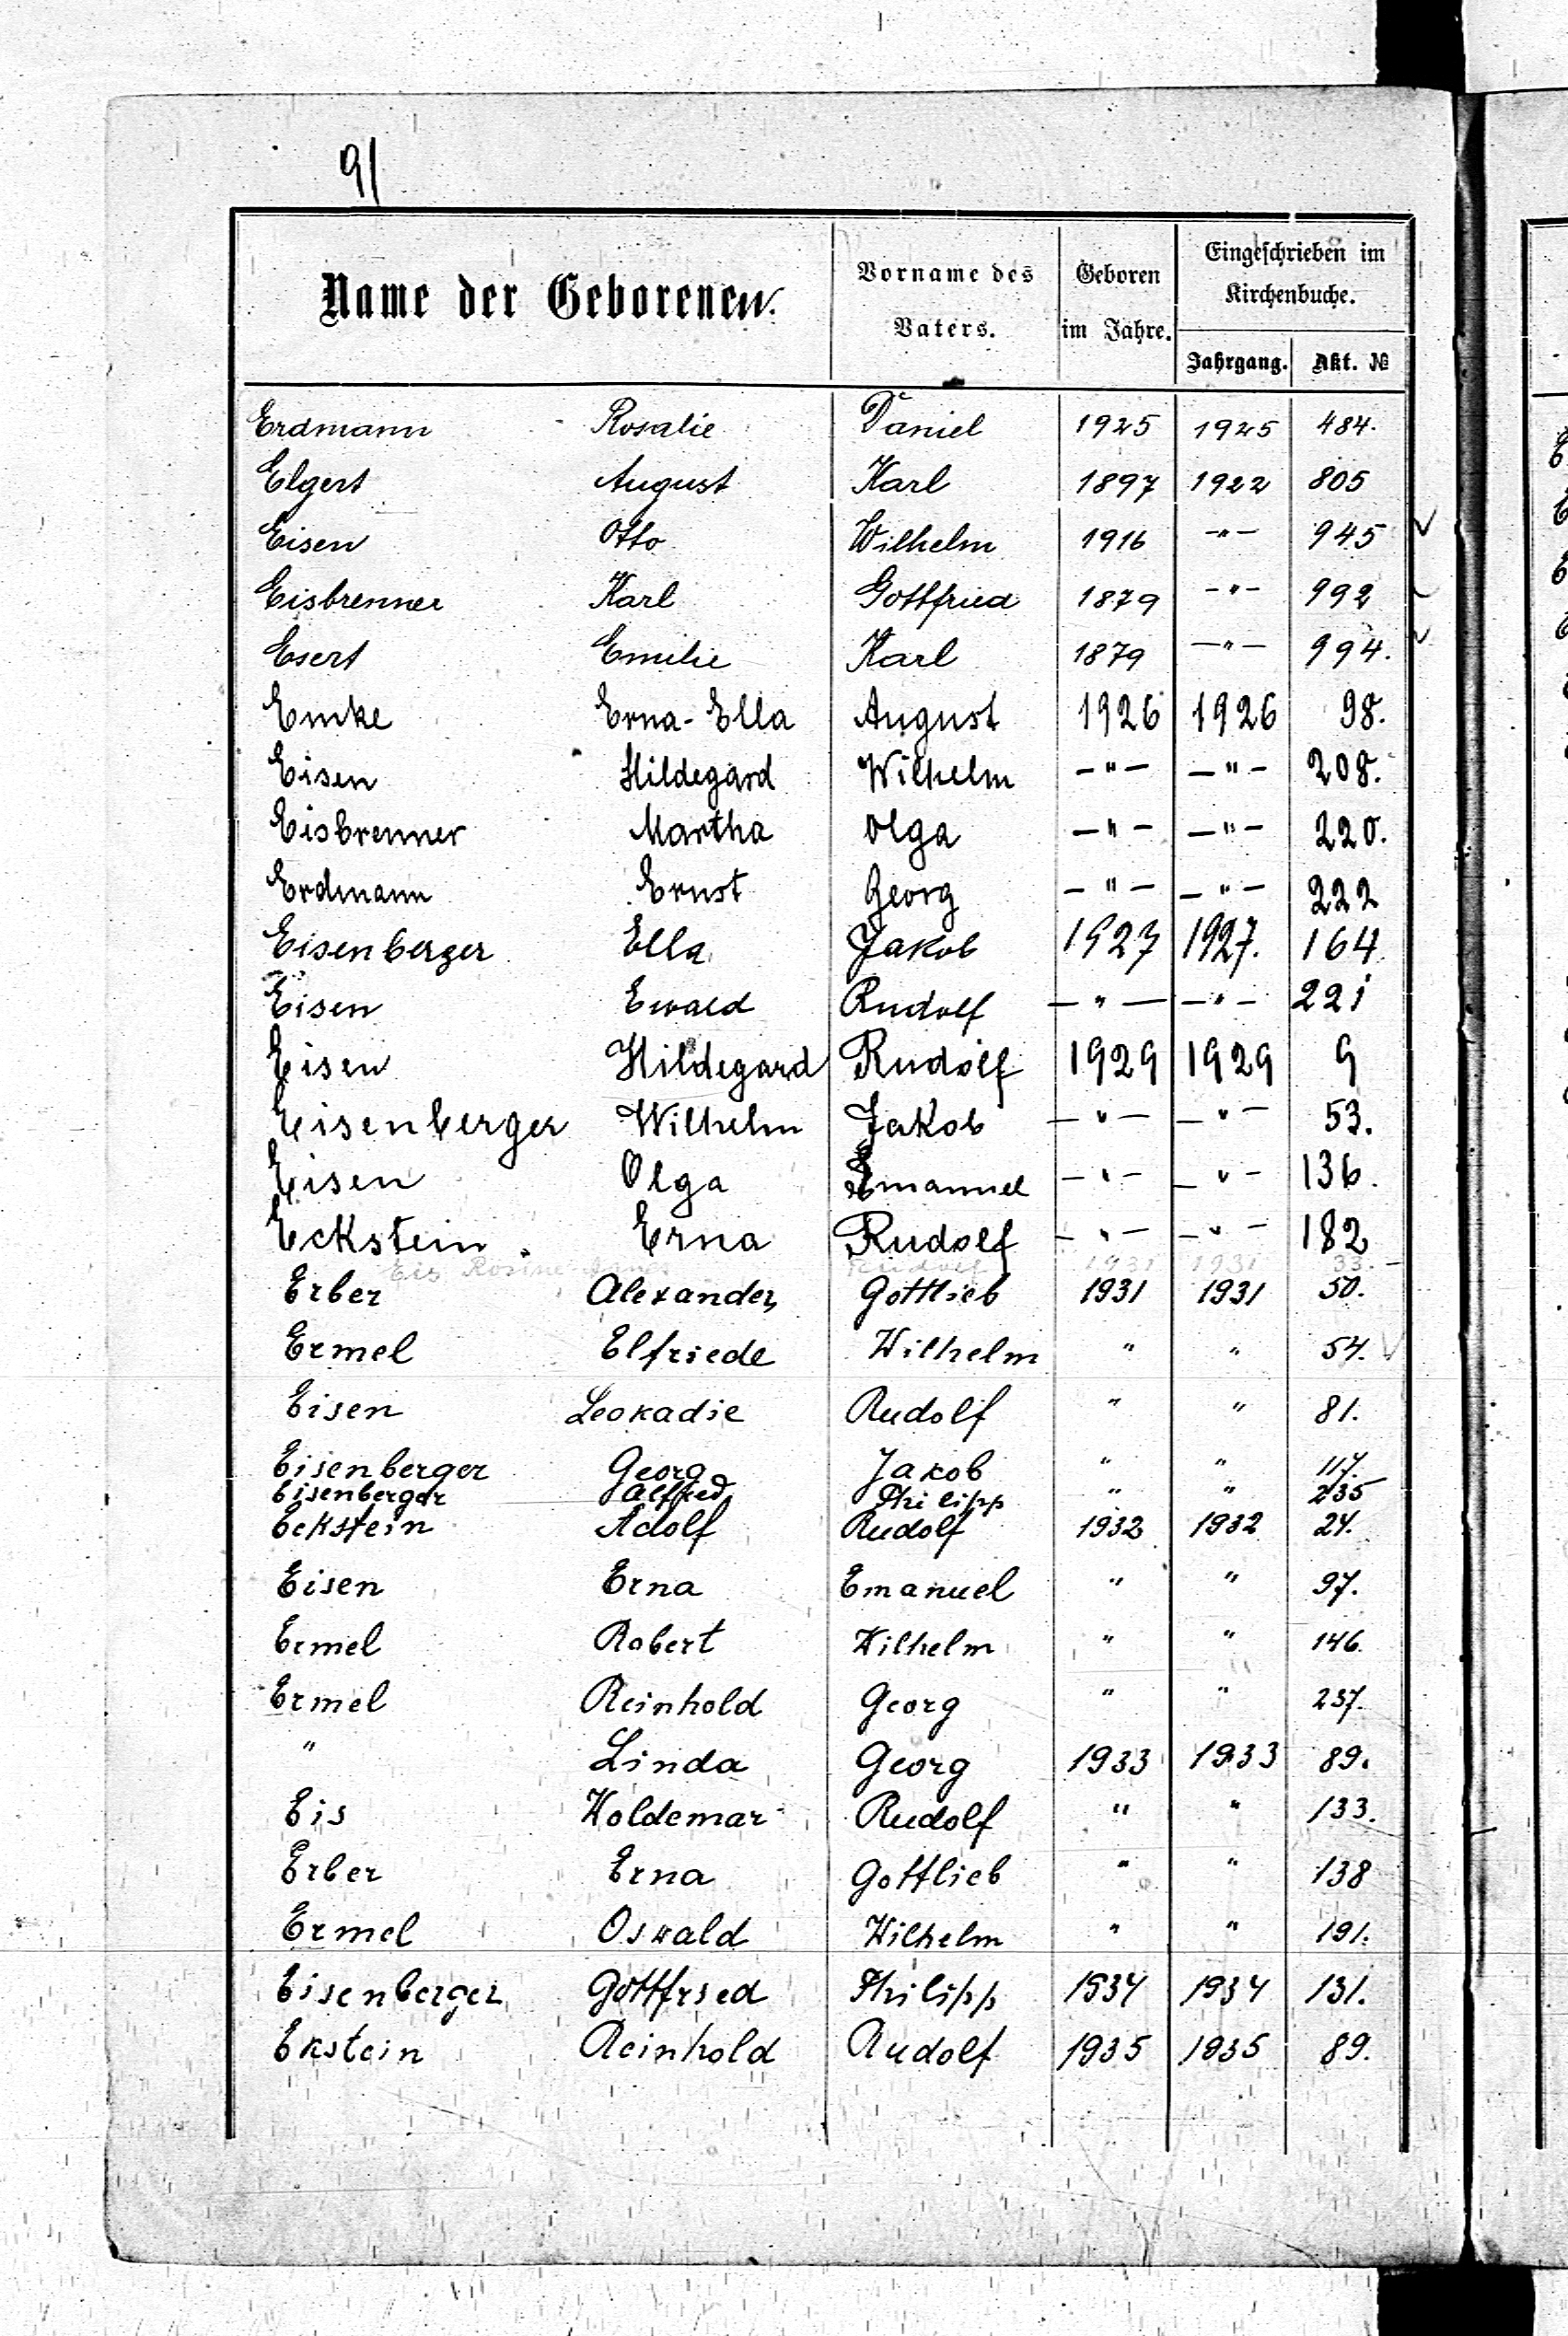 91
Name der Geborenen.
Vorname des Vaters.
Geboren im Jahre.
Eingeschrieben im Kirchenbuche.
Jahrgang. Akt. №
Erdmann Rosalie Daniel 1925 1925 484.
Elgert August Karl 1897 1922 805
Eisen Otto Wilhelm 1916 -"- 945
Eisbrenner Karl Gottfried 1879 -"- 992
Esert Emilie Karl 1879 -"- 994.
Emke Erna-Ella August 1926 1926 98.
Eisen Hildegard Wilhelm -"- -"- 208.
Eisbrenner Martha Olga -"- -"- 220.
Erdmann Ernst Georg -"- -"- 222
Eisenberger Ella Jakob 1927 1927. 164
Eisen Ewald Rudolf -"- -"- 221
Eisen Hildegard Rudolf 1929 1929 9
Eisenberger Wilhelm Jakob -"- -"- 53.
Eisen Olga Emanuel -"- -"- 136.
Eckstein. Erna Rudolf -"- -"- 182
Eis Rosine Rudolf 1931 1931 33.
Erber Alexander Gottlieb 1931 1931 50.
Ermel Elfriede Wilhelm " " 54.
Eisen Leokadie Rudolf " " 81.
Eisenberger Georg Jakob " " 117.
Eisenberger Alfred Philipp " " 235
Eckstein Adolf Rudolf 1932 1932 24.
Eisen Erna Emanuel " " 97.
Ermel Robert Wilhelm " " 146.
Ermel Reinhold Georg " " 237.
" Linda Georg 1933 1933 89.
Eis Woldemar Rudolf " " 133.
Erber Erna Gottlieb " " 138
Ermel Oswald Wilhelm " " 191.
Eisenberger Gottfried Philipp 1934 1934 131.
Ekstein Reinhold Rudolf 1935 1935 89.